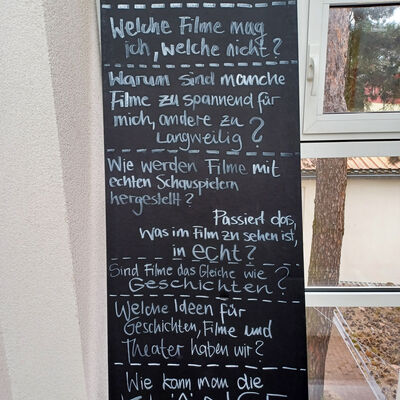 Welche Filme mag
ich, welche nicht?
Warum sind manche
Filme zu spannend für
mich, andere zu
Langweilig?
Wie werden Filme mit
echten Schauspielern
hergestellt?
Passiert das,
was im Film zu sehen ist,
in echt?
Sind Filme das Gleiche wie
Geschichten?
Welche Ideen für
Geschichten, Filme und
Theater haben wir?
Wie kann man die